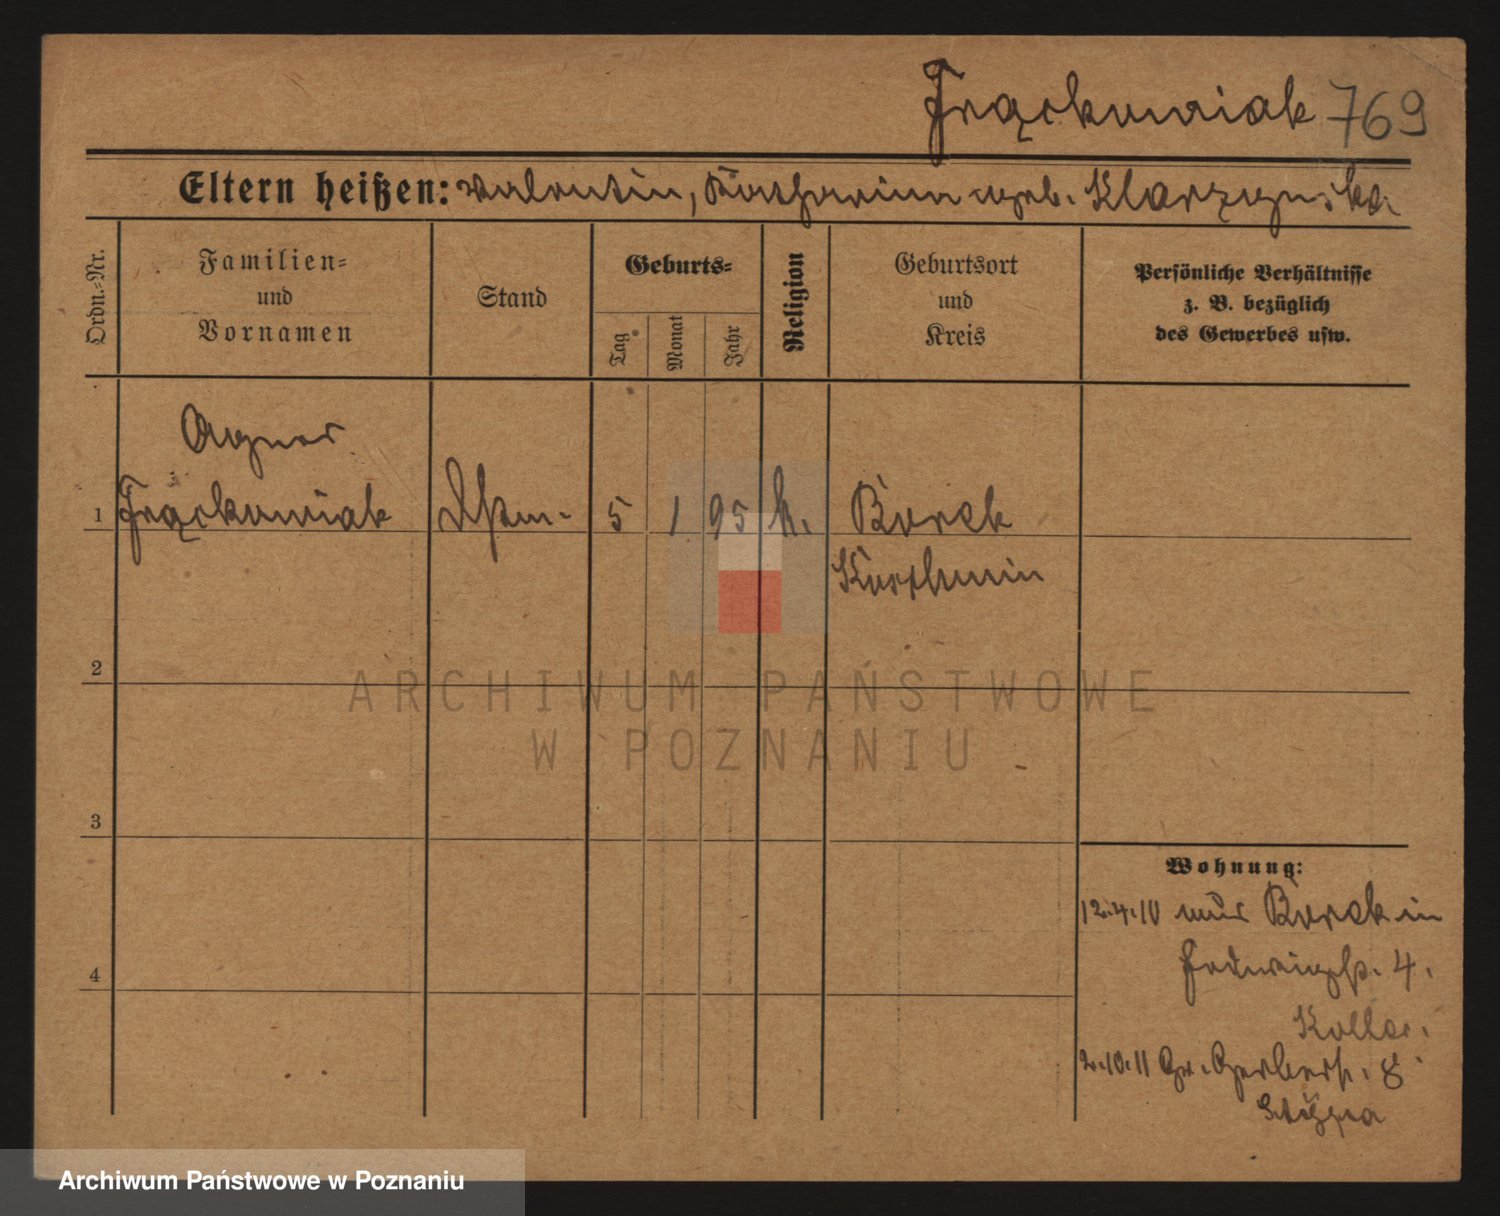 Frąckowiak 769
Eltern heißen: Valentin, Katharina geb. Klarzynska
Ordn.-Nr.
Familien-
und
Vornamen
Stand
Geburts-
Tag
Monat
Jahr
Religion
Geburtsort
und
Kreis
Persönliche Verhältnisse
z. B. bezüglich
des Gewerbes usw.
Agnes
1 Frąckowiak 5 1 95 k. Borek
Koschmin
2
3
4
Wohnung:
12.4.10 aus Borek in
Hedwigstr. 4.
2.10.11 Gr. Gerberstr. 8
ARCHIWUM PAŃSTWOWE
W POZNANIU
Archiwum Państwowe w Poznaniu